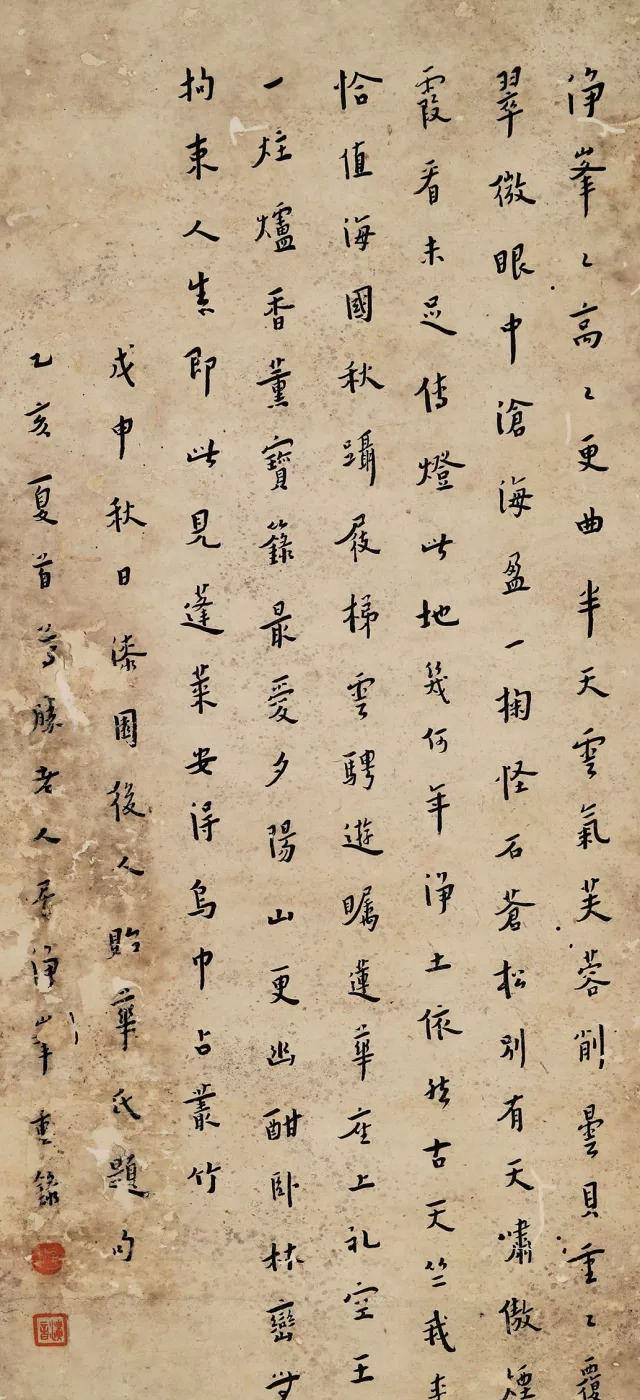 淨峯〻高〻更曲半天雲氣芙蓉削曇貝重〻覆
翠微眼中滄海盈一掬怪石蒼松別有天嘯傲煙
霞看未足傳燈此地幾何年淨土依然古天竺我来
恰值海國秋躡屐梯雲騁遊矚蓮華座上礼空王
一炷爐香薰寶籙最愛夕陽山更幽酣卧林巒
拘束人生即此見蓬萊安得烏巾占叢竹
戊申秋日漆園後人貽華氏題句
乙亥夏首尊勝老人居淨峯重錄